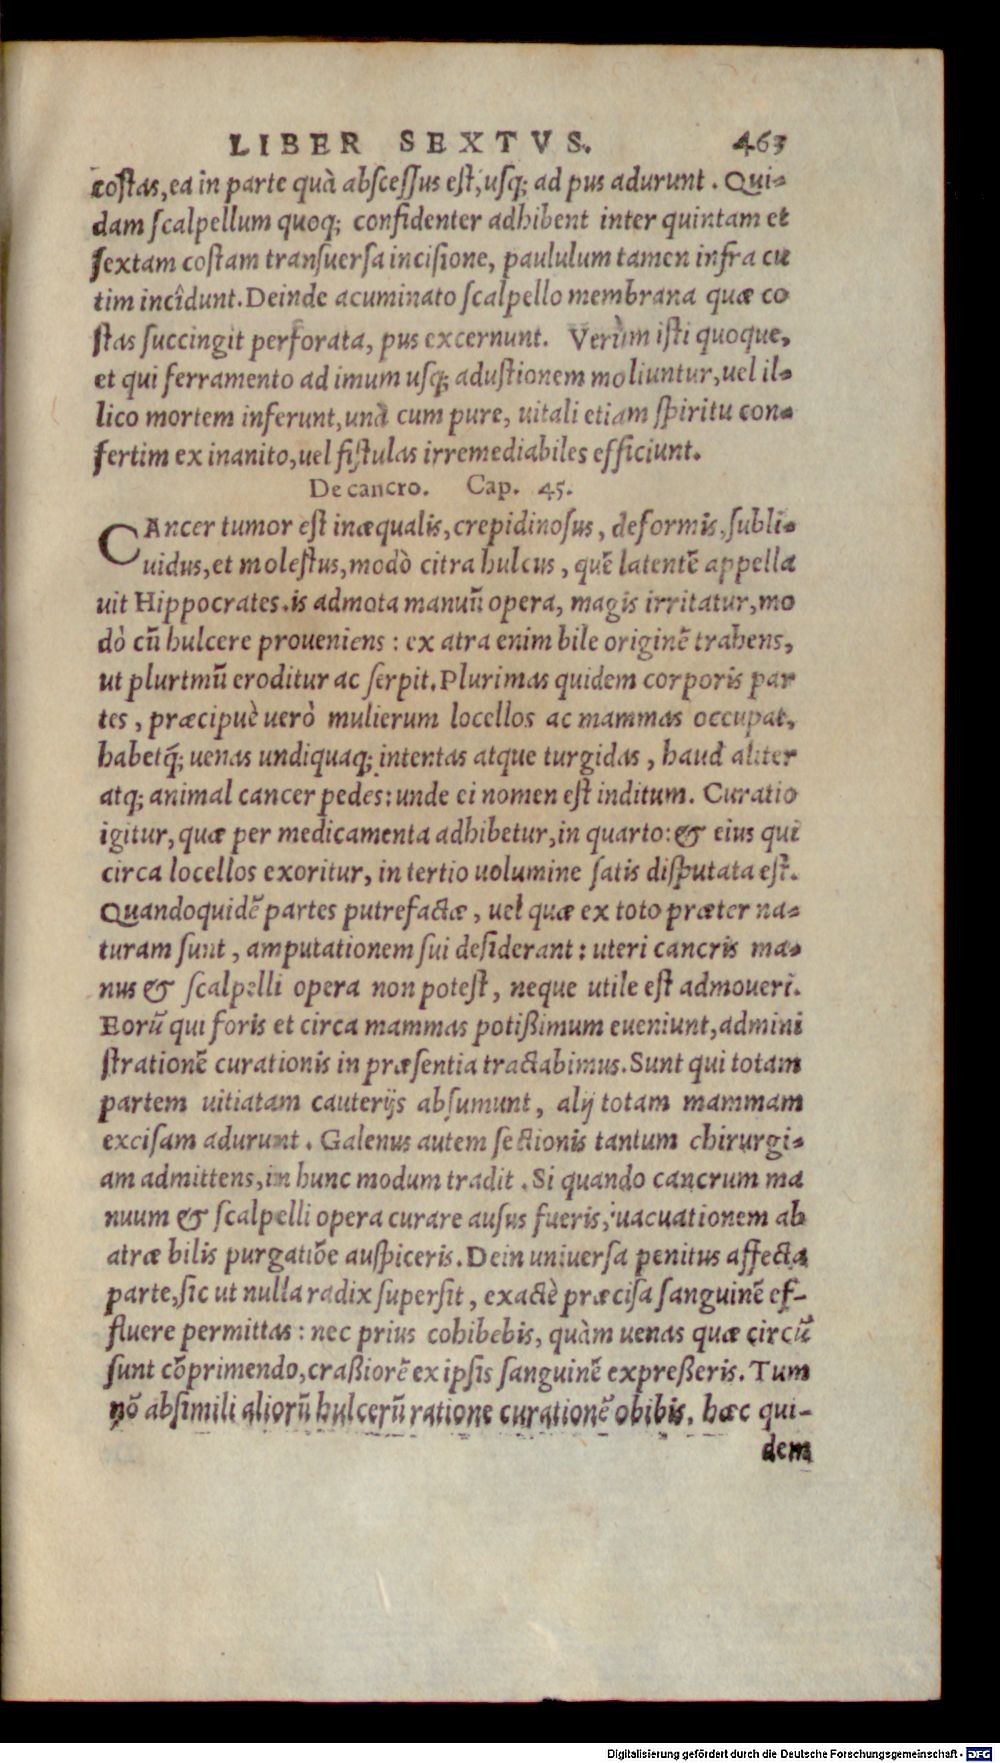 LIBER SEXTVS. 463
costas, ea in parte quà abscessus est, usq; ad pus adurunt. Qui-
dam scalpellum quoq; confidenter adhibent inter quintam et
sextam costam transuersa incisione, paululum tamen infra cu
tim incîdunt. Deinde acuminato scalpello membrana quæ co
stas succingit perforata, pus excernunt. Verùm isti quoque,
et qui ferramento ad imum usq; adustionem moliuntur, uel il-
lico mortem inferunt, unà cum pure, uitali etiam spiritu con-
fertim ex inanito, uel fistulas irremediabiles efficiunt.
De cancro. Cap. 45.
CAncer tumor est inæqualis, crepidinosus, deformis, subli-
uidus, et molestus, modò citra hulcus, quē latentē appella
uit Hippocrates. is admota manuū opera, magis irritatur, mo
dò cū hulcere proueniens: ex atra enim bile originē trahens,
ut plurtmū eroditur ac serpit. Plurimas quidem corporis par
tes, præcipuè uerò mulierum locellos ac mammas occupat,
habetq́; uenas undiquaq; intentas atque turgidas, haud aliter
atq; animal cancer pedes: unde ei nomen est inditum. Curatio
igitur, quæ per medicamenta adhibetur, in quarto: & eius qui
circa locellos exoritur, in tertio uolumine satis disputata est.
Quandoquidē partes putrefactæ, uel quæ ex toto præter na-
turam sunt, amputationem sui desiderant: uteri cancris ma-
nus & scalpelli opera non potest, neque utile est admoueri.
Eorū qui foris et circa mammas potißimum eueniunt, admini
strationē curationis in præsentia tractabimus. Sunt qui totam
partem uitiatam cauterijs absumunt, alij totam mammam
excisam adurunt. Galenus autem sectionis tantum chirurgi-
am admittens, in hunc modum tradit. Si quando cancrum ma
nuum & scalpelli opera curare ausus fueris, uacuationem ab
atræ bilis purgatiōe auspiceris. Dein uniuersa penitus affecta
parte, sic ut nulla radix supersit, exactè præcisa sanguinē ef-
fluere permittas: nec prius cohibebis, quàm uenas quæ circū
sunt cōprimendo, craßiorē ex ipsis sanguinē expreßeris. Tum
nō absimili aliorū hulcerū ratione curationē obibis. hæc qui-
dem
Digitalisierung gefördert durch die Deutsche Forschungsgemeinschaft - DFG